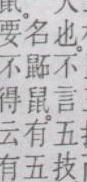 也。不言五技
名鼫鼠。有五
鼠。要不得云有